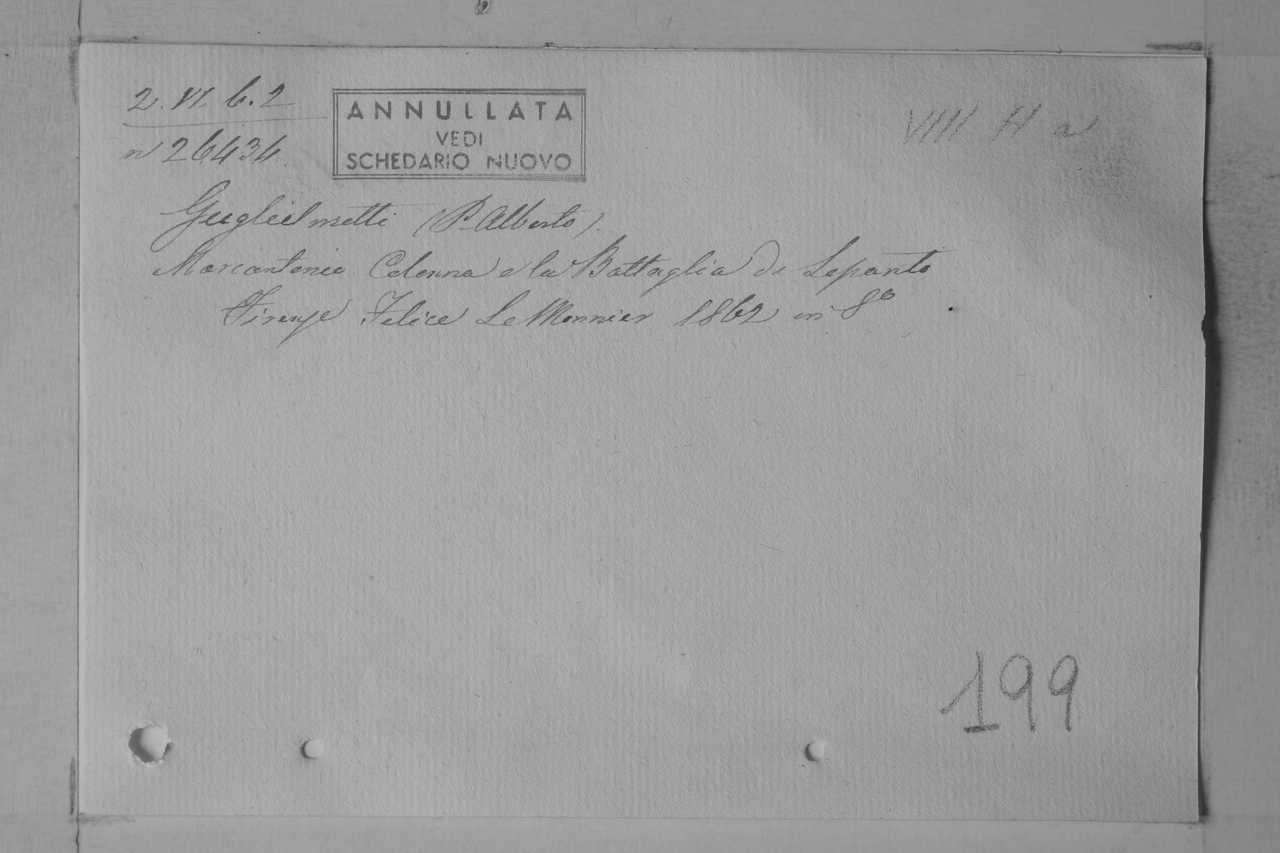 2. VI. 6. 2
n 26434.
ANNULLATA
VEDI
SCHEDARIO NUOVO
VIII H a
Guglielmotti (P. Alberto).
Marcantonio Colonna e la Battaglia di Lepanto
Firenze Felice Le Monnier 1862 in 8º
199